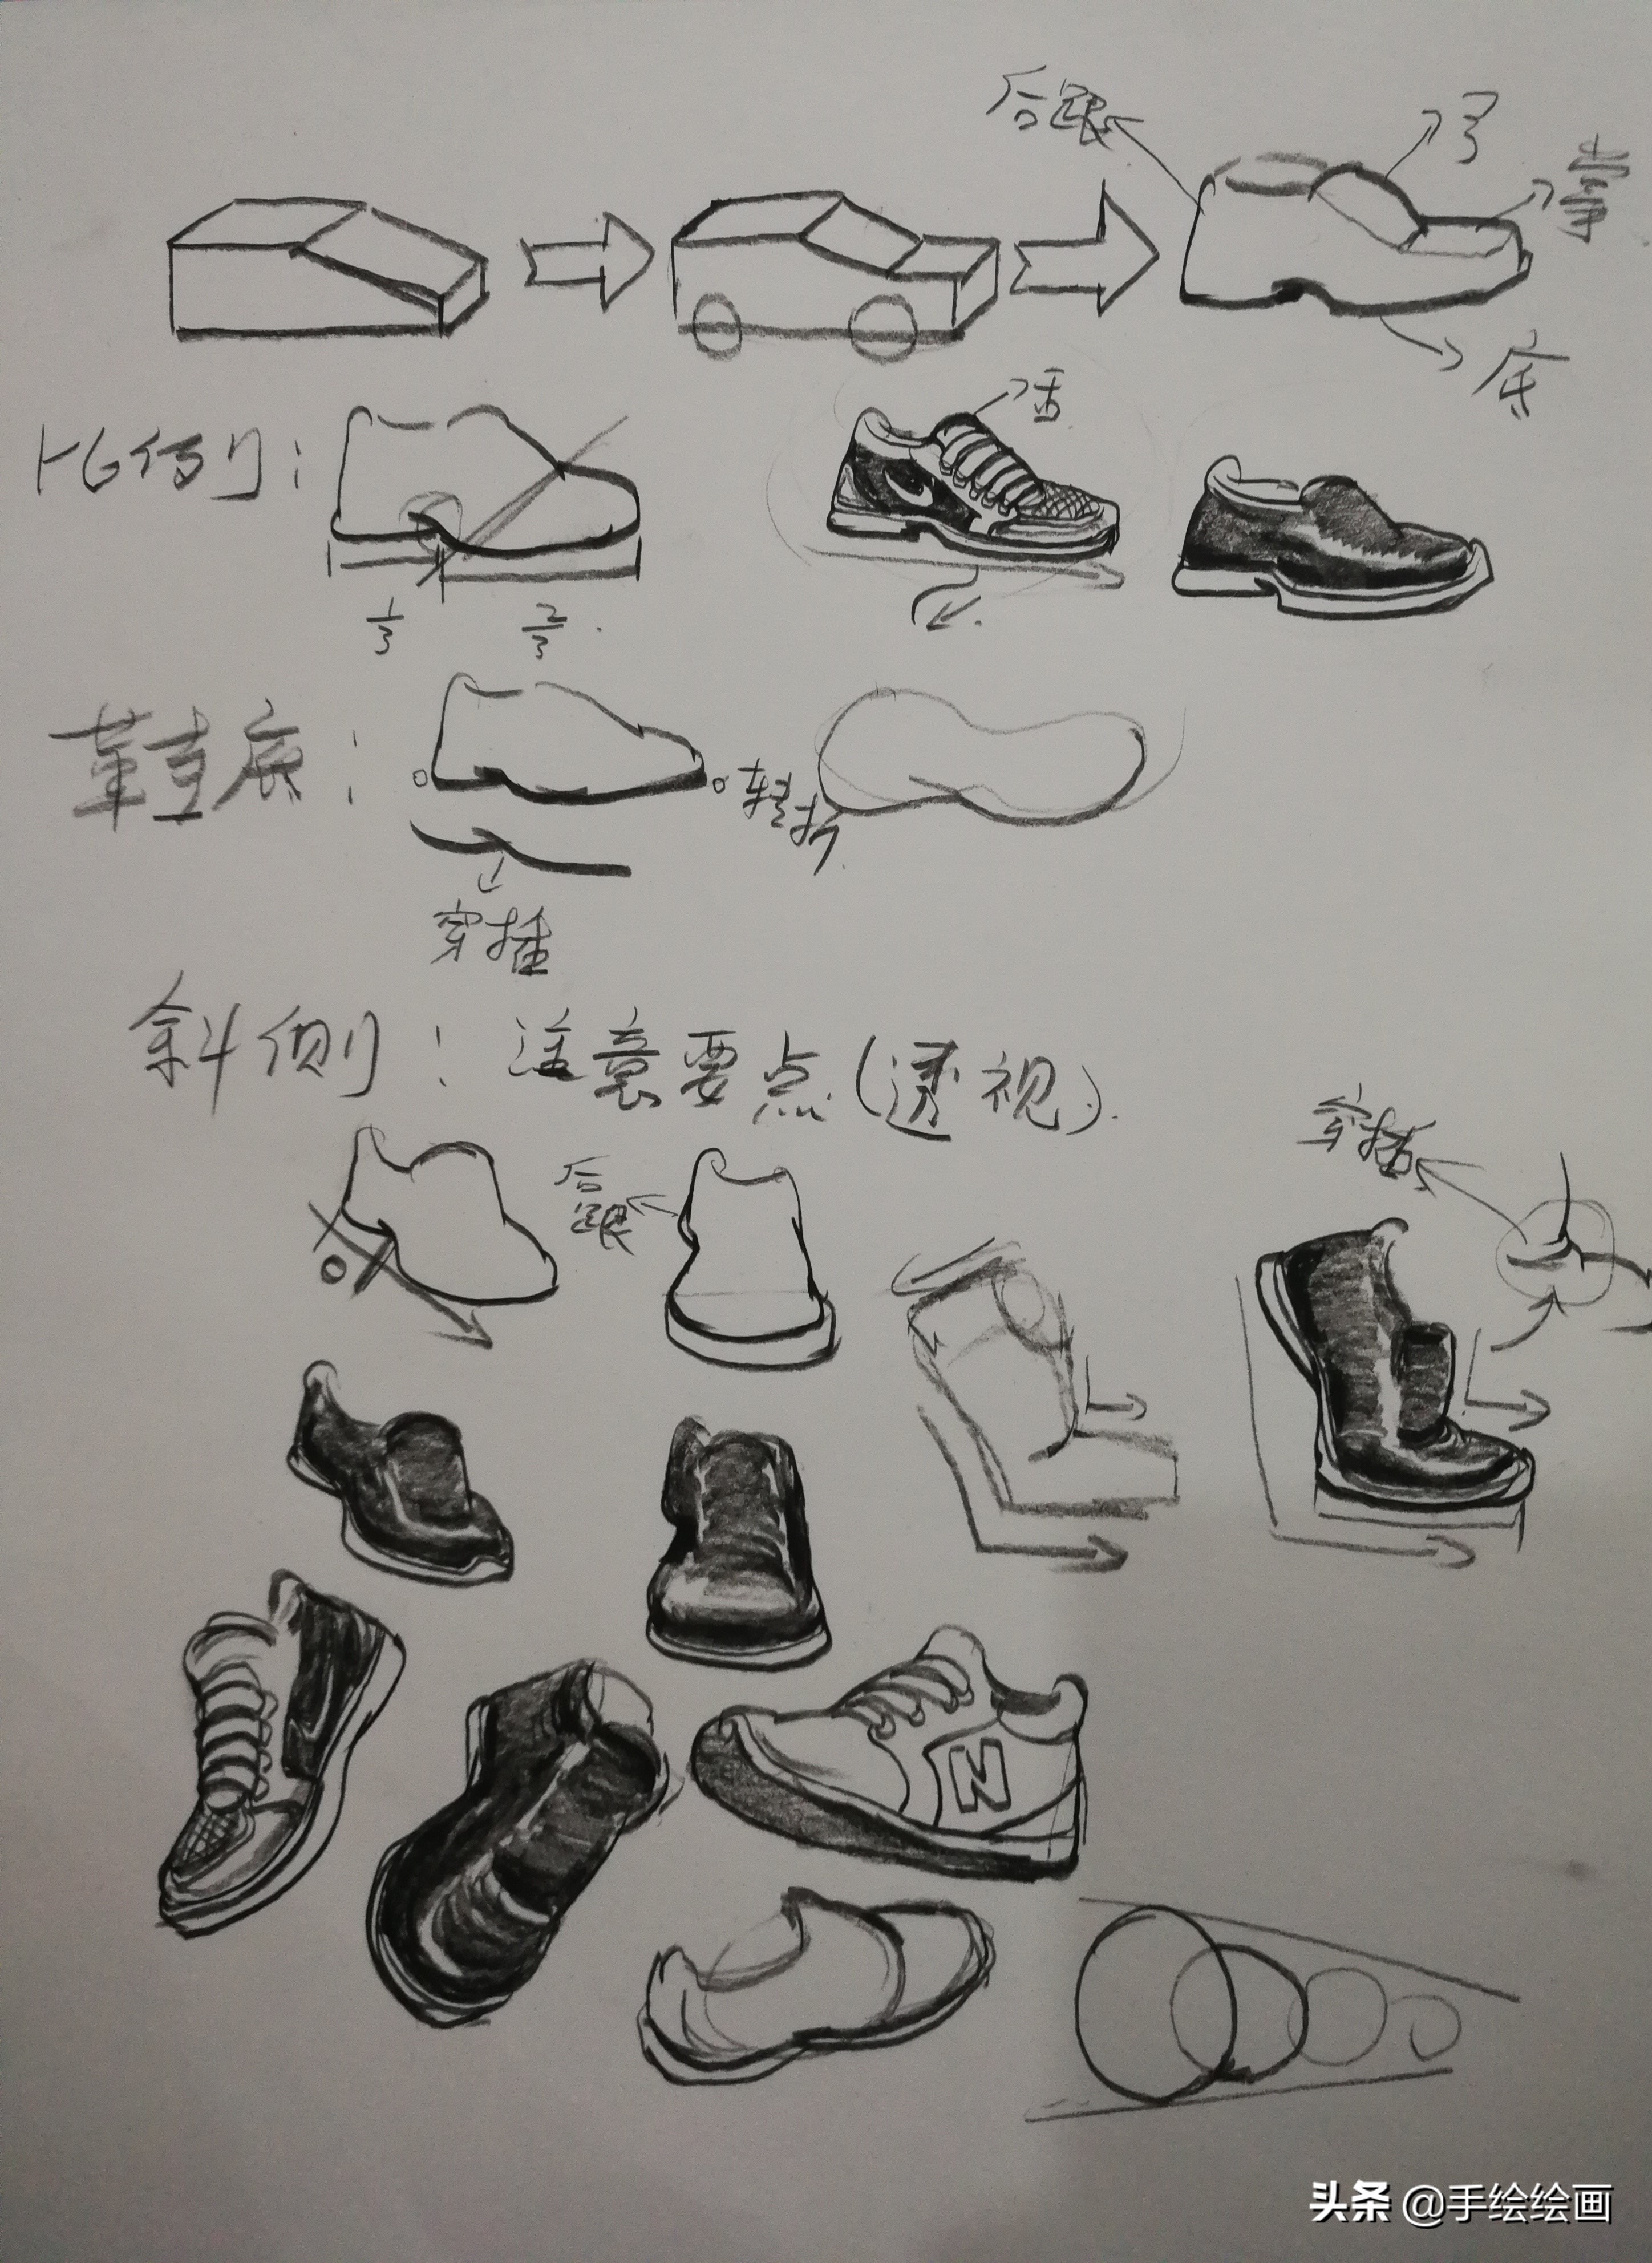 后跟
弓
掌
底
舌
比例：
1/3
2/3
鞋底：
转折
穿插
斜侧：注意要点（透视）
穿插
后跟
N
头条 @手绘绘画